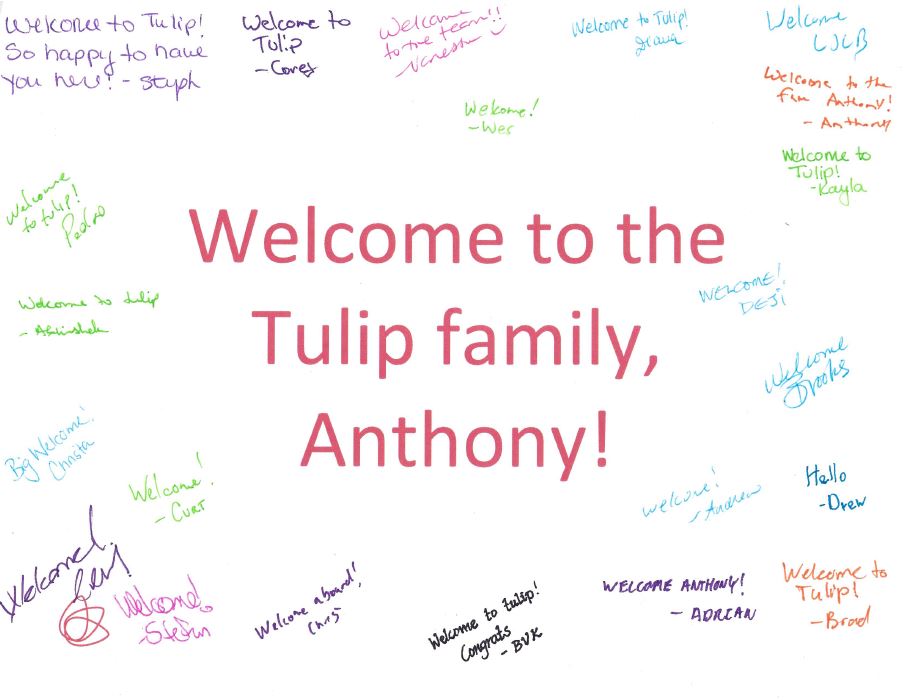 Welcome to Tulip!
So happy to have
you here! - Steph
Welcome to
Tulip
- Corey
Welcome
to the team!!
- Vanessa
Welcome to Tulip!
Welcome
Welcome!
- Wes
Welcome to the
fam Anthony!
- Anthony
Welcome to
Tulip!
- Kayla
Welcome
to tulip!
Pedro
Welcome to the
Tulip family,
Anthony!
WELCOME!
DEJi
Welcome to tulip
- Abhishek
Welcome
Brooks
Big Welcome!
Christa
Welcome!
- CURT
welcome!
- Andrew
Hello
- Drew
Welcome!
Welcome!
- Stefan
Welcome aboard!
Chris
Welcome to tulip!
Congrats
- BVK
WELCOME ANTHONY!
- ADRIAN
Welcome to
Tulip!
- Brad